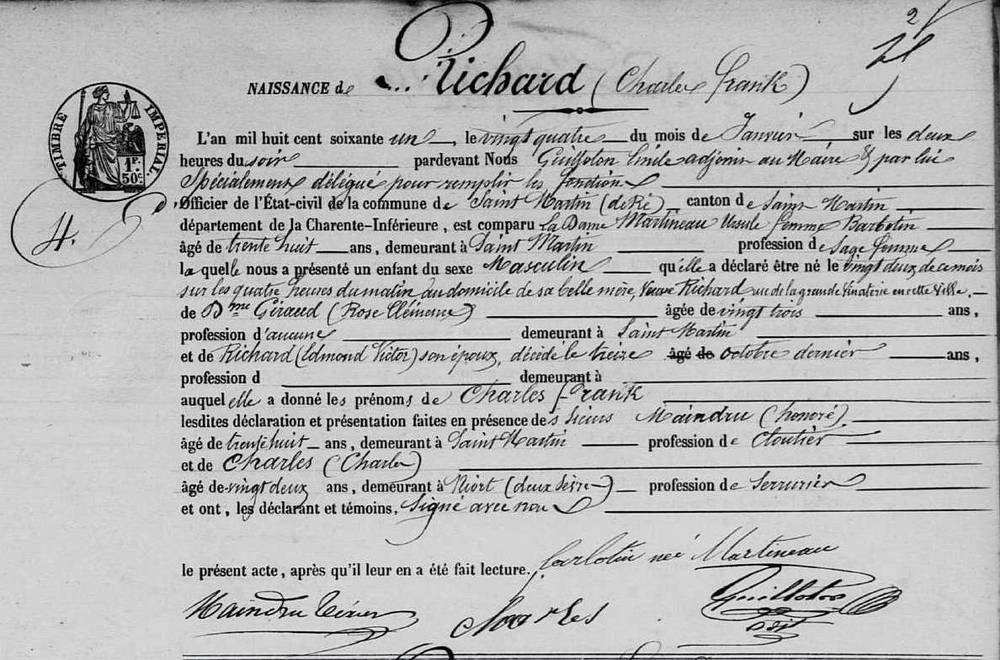 2
NAISSANCE de Richard (Charles Frank)
TIMBRE IMPÉRIAL
1F. 50c
4.
L'an mil huit cent soixante un, le vingt quatre du mois de Janvier sur les deux
heures du soir pardevant Nous Guilloton Emile adjoint au Maire & par lui
Spécialement délégué pour remplir les fonctions
d'Officier de l'État-civil de la commune de Saint Martin (de Ré) canton de Saint Martin
département de la Charente-Inférieure, est comparu La Dame Martineau Ursule femme Barbotin
âgé de trente huit ans, demeurant à Saint Martin profession de Sage femme
la quelle nous a présenté un enfant du sexe Masculin qu'elle a déclaré être né le vingt deux de ce mois
sur les quatre heures du matin au domicile de sa belle mère, Veuve Richard rue de la grande Vinaterie en cette Ville,
de Dme Giraud (Rose Clémence) âgée de vingt trois ans,
profession d'aucune demeurant à Saint Martin
et de Richard (Edmond Victor) son époux, décédé le treize âgé de octobre dernier ans,
profession d demeurant à
auquel elle a donné les prénoms de Charles Frank
lesdites déclaration et présentation faites en présence des sieurs Maindru (honoré)
âgé de trente huit ans, demeurant à Saint Martin profession de Cloutier
et de Charles (Charles)
âgé de vingt deux ans, demeurant à Niort (deux Sèvres) profession de Serrurier
et ont, les déclarant et témoins, Signé avec nous
le présent acte, après qu'il leur en a été fait lecture. Barbotin née Martineau
Maindru Charles Guilloton
adjt